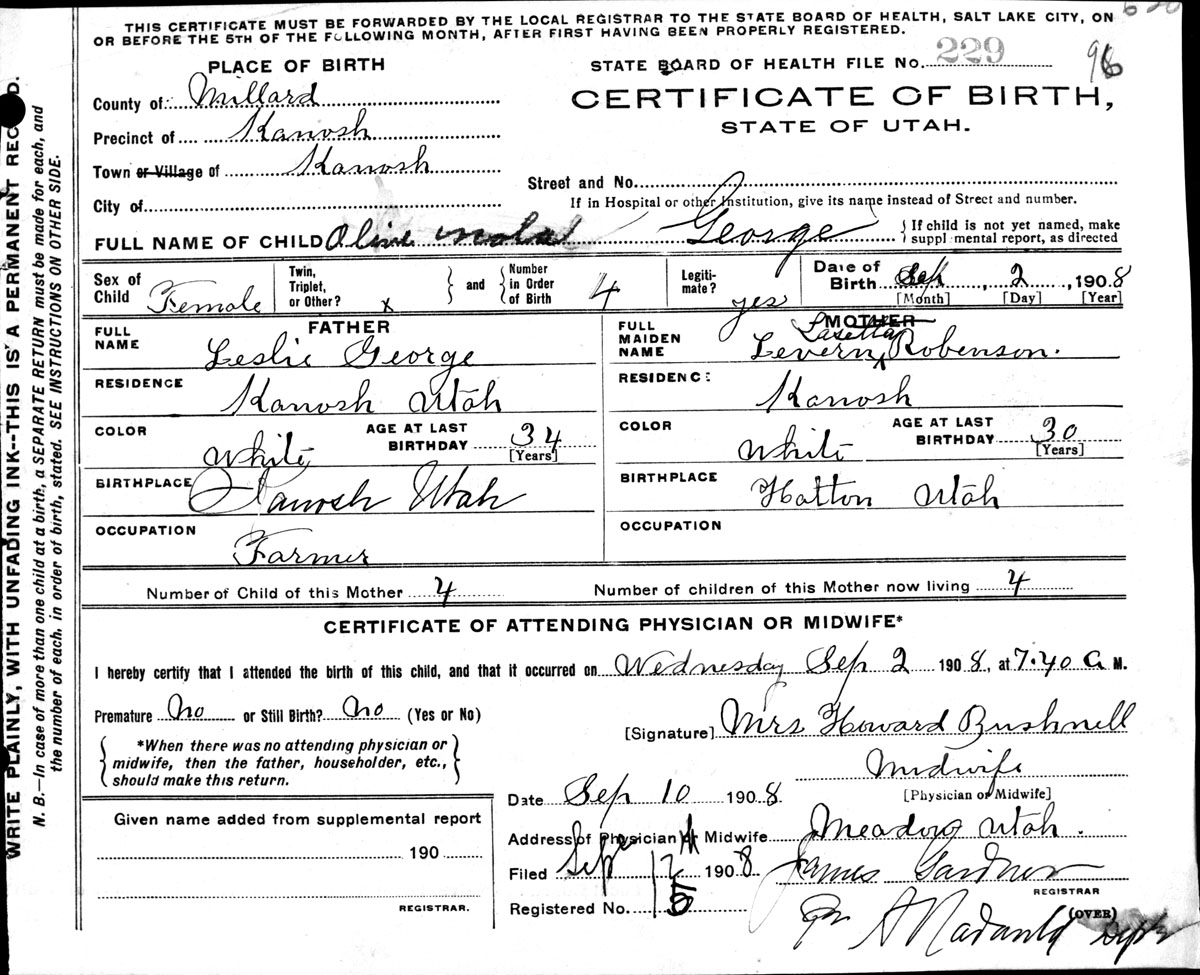 THIS CERTIFICATE MUST BE FORWARDED BY THE LOCAL REGISTRAR TO THE STATE BOARD OF HEALTH, SALT LAKE CITY, ON
OR BEFORE THE 5TH OF THE FOLLOWING MONTH, AFTER FIRST HAVING BEEN PROPERLY REGISTERED.
PLACE OF BIRTH
STATE BOARD OF HEALTH FILE No. 229
County of Millard
CERTIFICATE OF BIRTH,
Precinct of Kanosh
STATE OF UTAH.
Town or Village of Kanosh
Street and No.
City of
If in Hospital or other Institution, give its name instead of Street and number.
FULL NAME OF CHILD Olive George
If child is not yet named, make
supplmental report, as directed
Sex of Child Female
Twin, Triplet, or Other? x
and
Number in Order of Birth 4
Legitimate? yes
Date of Birth Sep 2, 1908
[Month] [Day] [Year]
FATHER
FULL NAME Leslie George
RESIDENCE Kanosh Utah
COLOR White
AGE AT LAST BIRTHDAY 34
[Years]
BIRTHPLACE Kanosh Utah
OCCUPATION Farmer
MOTHER
FULL MAIDEN NAME Levern Rosetta Robenson.
RESIDENCE Kanosh
COLOR White
AGE AT LAST BIRTHDAY 30
[Years]
BIRTHPLACE Hatton Utah
OCCUPATION
Number of Child of this Mother 4
Number of children of this Mother now living 4
CERTIFICATE OF ATTENDING PHYSICIAN OR MIDWIFE*
I hereby certify that I attended the birth of this child, and that it occurred on Wednesday Sep 2 1908, at 7.40 a M.
Premature No or Still Birth? No (Yes or No)
[Signature] Mrs Howard Bushnell
*When there was no attending physician or
midwife, then the father, householder, etc.,
should make this return.
Midwife
[Physician or Midwife]
Date Sep 10 1908
Given name added from supplemental report
190
REGISTRAR.
Address of Physician or Midwife Meadow Utah.
Filed Sep 12 1908 James Gardner
REGISTRAR
Registered No. 5
(OVER)
WRITE PLAINLY, WITH UNFADING INK--THIS IS A PERMANENT RECORD.
N. B.—In case of more than one child at a birth, a SEPARATE RETURN must be made for each, and
the number of each, in order of birth, stated. SEE INSTRUCTIONS ON OTHER SIDE.